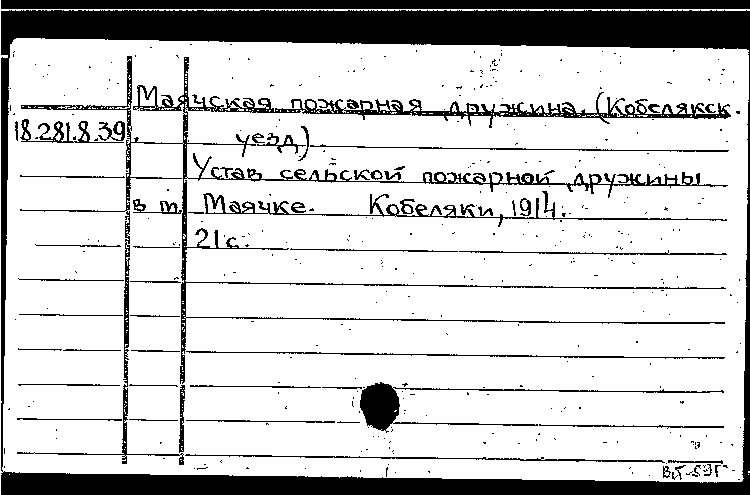 Маячская пожарная дружина. (Кобелякск.
18.281.8.39. уезд)
Устав сельской пожарной дружины
в т. Маячке. Кобеляки, 1914.
21с.